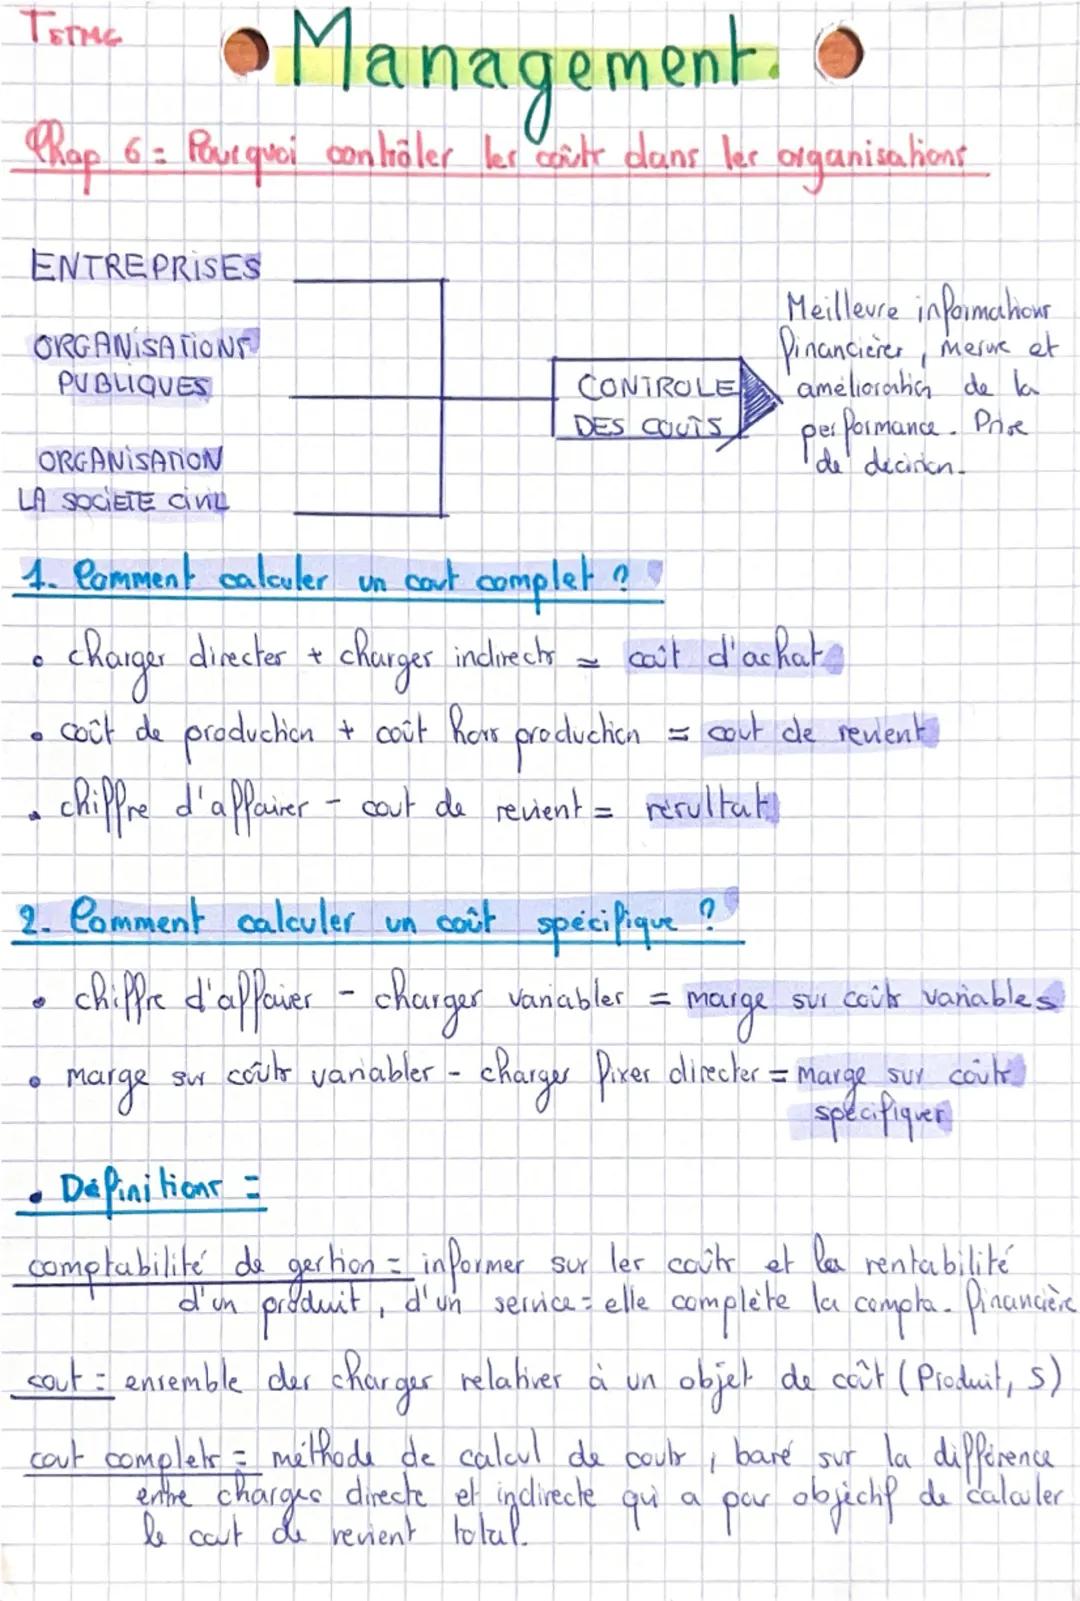 TSTMG
Management.
Chap 6 = Pourquoi contrôler les coûts dans les organisations
ENTREPRISES
ORGANISATIONS
PUBLIQUES
ORGANISATION
LA SOCIETE CIVIL
CONTROLE
DES COUTS
Meilleure informations
financières, mesure et
amélioration de la
performance. Prise
de décision.
1. Comment calculer un cout complet ?
• charges directes + charges indirects = coût d'achat
• coût de production + coût hors production = cout de revient
• chiffre d'affaires - cout de revient = résultat
2. Comment calculer un coût spécifique ?
• chiffre d'affaires - charges variables = marge sur coûts variables
• marge sur coûts variables - charges fixes directes = marge sur coûts
spécifiques
• Définitions =
comptabilité de gestion = informer sur les coûts et la rentabilité
d'un produit, d'un service = elle complète la compta. financière
cout = ensemble des charges relatives à un objet de coût (Produit, S)
cout complets = méthode de calcul de couts, basé sur la différence
entre charges directe et indirecte qui a pour objectif de calculer
le cout de revient total.